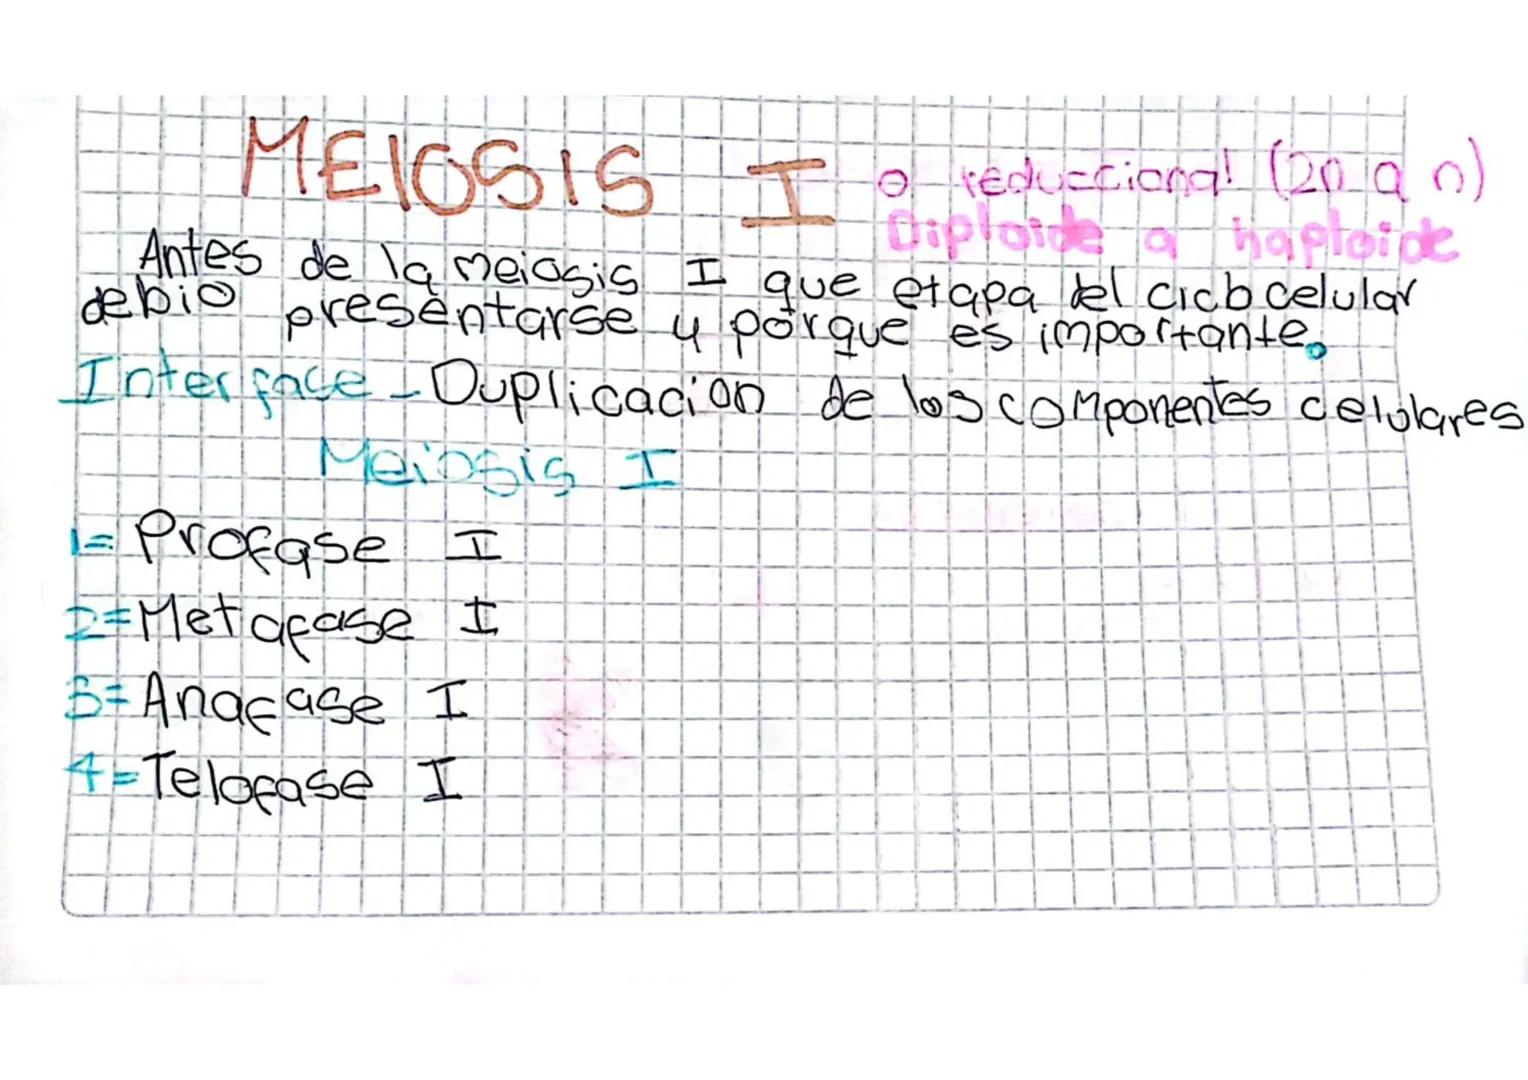 MEIOSIS I o reduccional (2n a n)
Diploide a haploide
Antes de la meiosis I que etapa del ciclo celular
debio presentarse y porque es importante.
Interface - Duplicacion de los componentes celulares
Meiosis I
1= Profase I
2= Metafase I
3= Anafase I
4= Telofase I